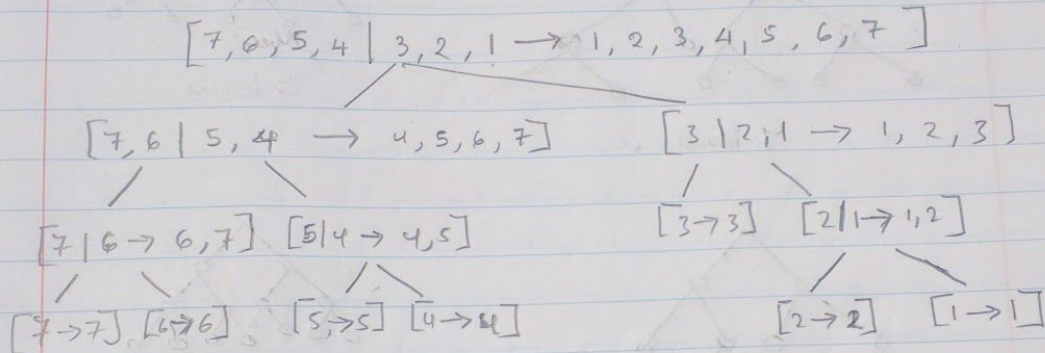 [7, 6, 5, 4 | 3, 2, 1 → 1, 2, 3, 4, 5, 6, 7]
[7, 6 | 5, 4 → 4, 5, 6, 7] [3 | 2, 1 → 1, 2, 3]
[7 | 6 → 6, 7] [5 | 4 → 4, 5] [3 → 3] [2 | 1 → 1, 2]
[7 → 7] [6 → 6] [5, → 5] [4 → 4] [2 → 2] [1 → 1]